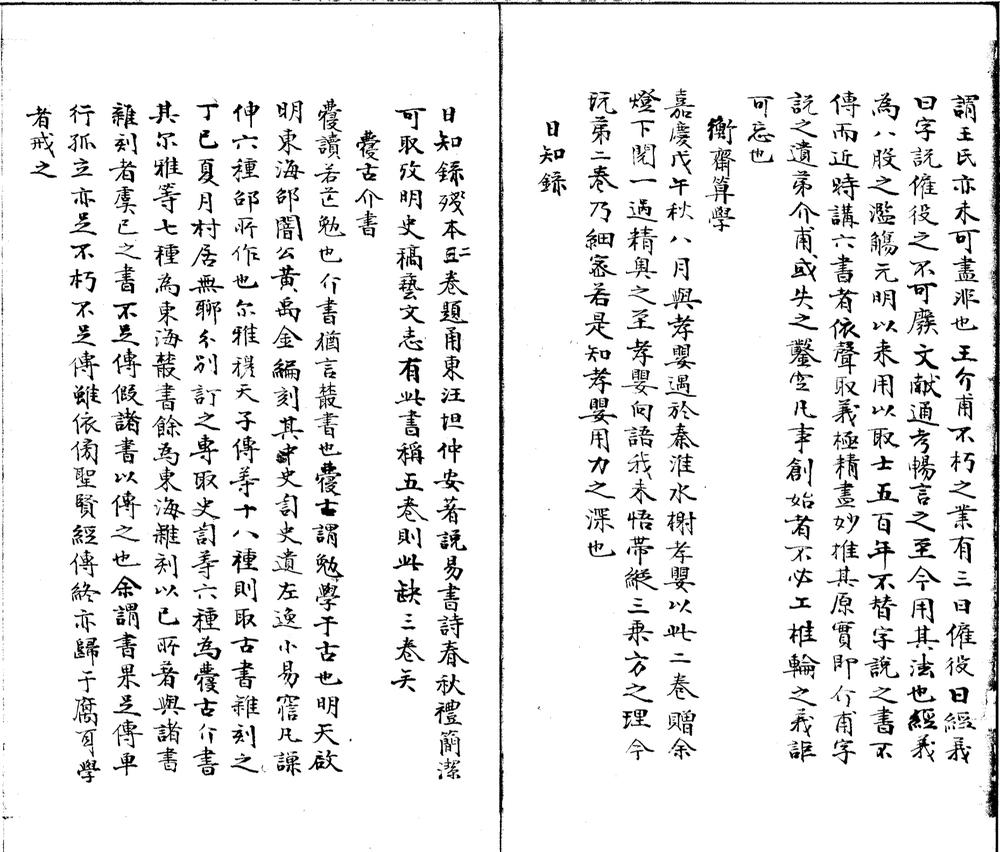 謂王氏亦未可盡非也王介甫不朽之業有三曰僱役曰經義
曰字説僱役之不可廢文献通考暢言之至今用其法也經義
為八股之濫觴元明以来用以取士五百年不替字説之書不
傳而近時講六書者依聲取義極精盡妙推其原實即介甫字
説之遺苐介甫或失之鑿空凡事創始者不必工椎輪之義詎
可忘也
衡齋算學
嘉慶戊午秋八月與孝嬰遇於秦淮水榭孝嬰以此二卷贈余
燈下閲一過精奥之至孝嬰向語我未悟帶縱三乗方之理今
玩苐二卷乃細審若是知孝嬰用力之深也
日知録
日知録殘本二卷題甬東汪坦仲安著説易書詩春秋禮簡潔
可取攷明史稿藝文志有此書稱五卷則此缺三卷矣
亹古介書
亹讀若芒勉也介書猶言叢書也亹古謂勉學于古也明天啟
明東海邵闇公黄禹金編刻其中史訇史遺左逸小易𥧌凡謀
伸六種邵所作也尔雅穆天子傳等十八種則取古書雜刻之
丁巳夏月村居無聊分别訂之專取史訇等六種為亹古介書
其尔雅等七種為東海叢書餘為東海雜刻以已所著與諸書
雜刻者虞已之書不足傳假諸書以傳之也余謂書果足傳單
行孤立亦足不朽不足傳雖依傍聖賢經傳終亦歸于腐耳學
者戒之